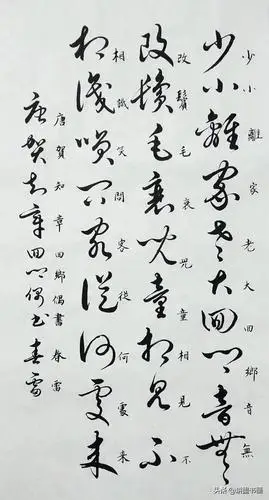 少小離家老大回鄉音無
少小離家老大回鄉音無
改鬢毛衰兒童相見不
改鬢毛衰兒童相見不
相識笑問客從何處來
相識笑問客從何處來
唐賀知章回鄉偶書春雷
唐賀知章回鄉偶書春雷
头条